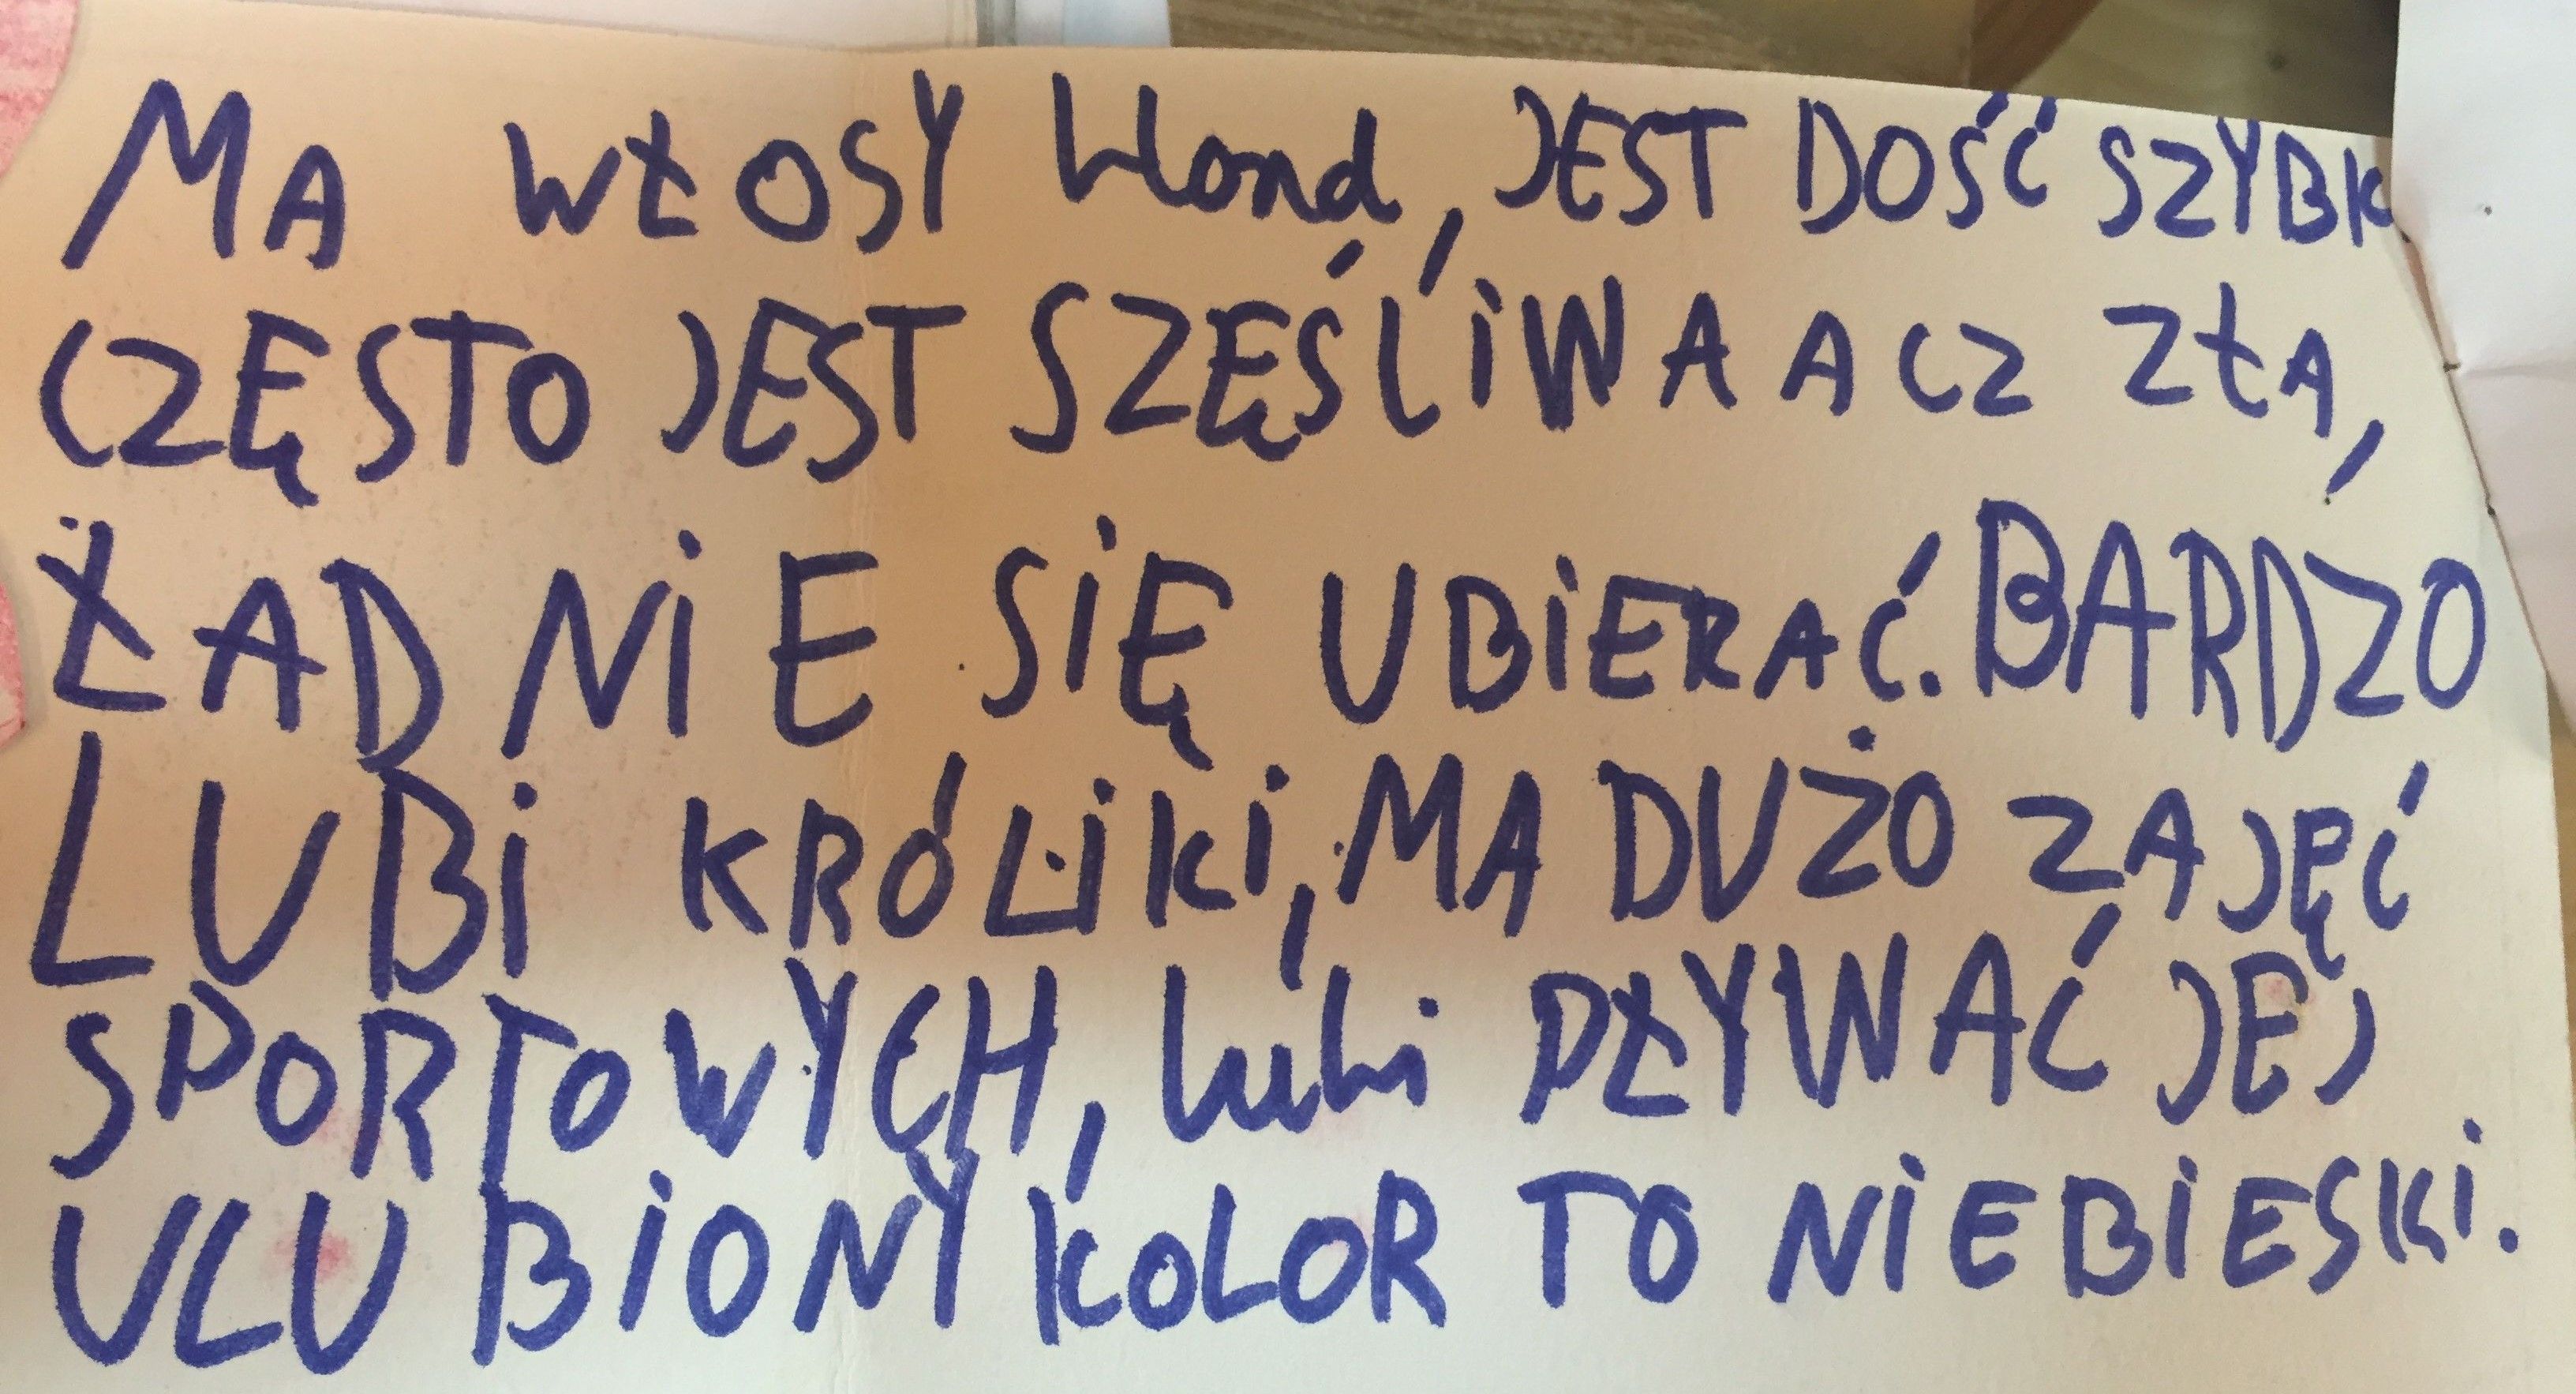 MA WŁOSY blond, JEST DOŚĆ SZYBK
CZĘSTO JEST SZĘŚLiWA A CZ ZŁA,
ŁADNiE SiĘ UBiERAĆ. BARDZO
LUBi KRÓLiKi, MA DUŻO ZAJĘĆ
SPORTOWYCH, lubi PŁYWAĆ JEJ
ULUBiONY KOLOR TO NiEBiESKi.